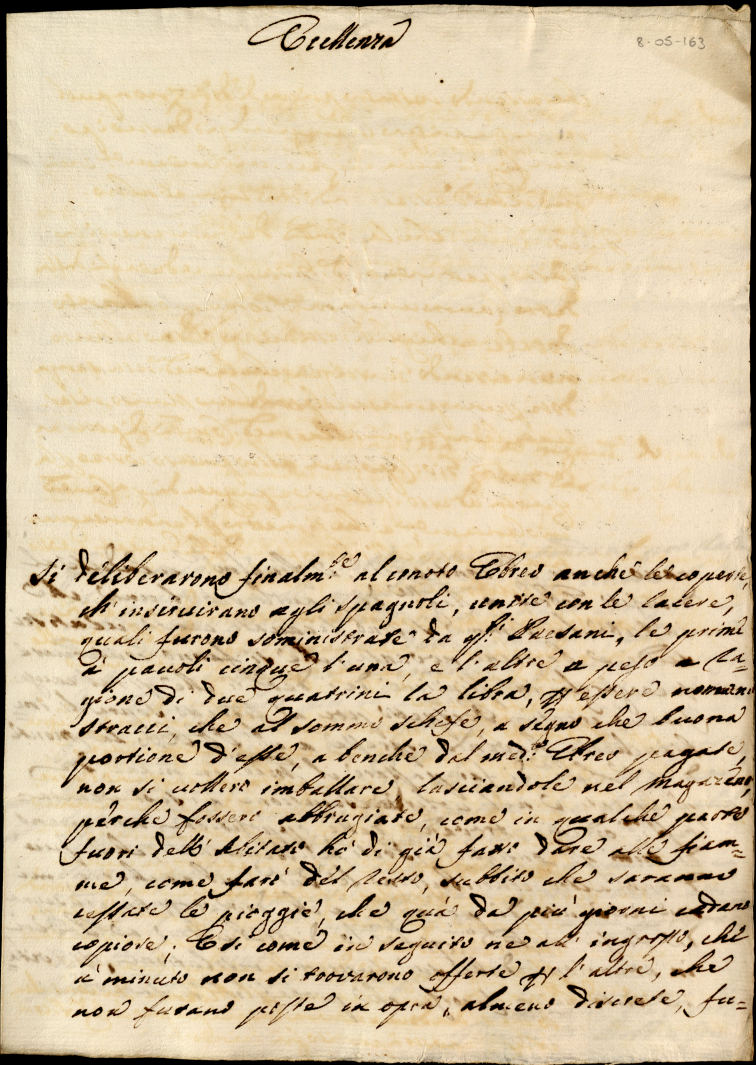 Eccellenza
8-05-163
Si deliberarono finalm.te al conoto Ebreo anche le coperte,
ch' inservirano agli spagnoli, unite con le lacere,
quali furono soministrate da q.sti Paesani, le prime
à pauoli cinque l'una, e l'altre a peso a ra=
gione di due quatrini la libra, p essere nomeno
stracci, che al sommo schife, a segno che buona
portione d'esse, a benche dal med.o Ebreo pagate,
non si uollero imballare lasciandole nel magazeno,
perche fossero abbrugiate, come in qualche parte
fuori dell' Abitato hò di già fatto dare alle fiam=
me, come farò del resto, subbito che saranno
cessate le pioggie, che quà da più giorni cadano
copiose; E si come in seguito ne all' ingrosso, che
à minuto non si trovarono offerte p l'altre, che
non furano poste in opra, almeno discrete, fu=